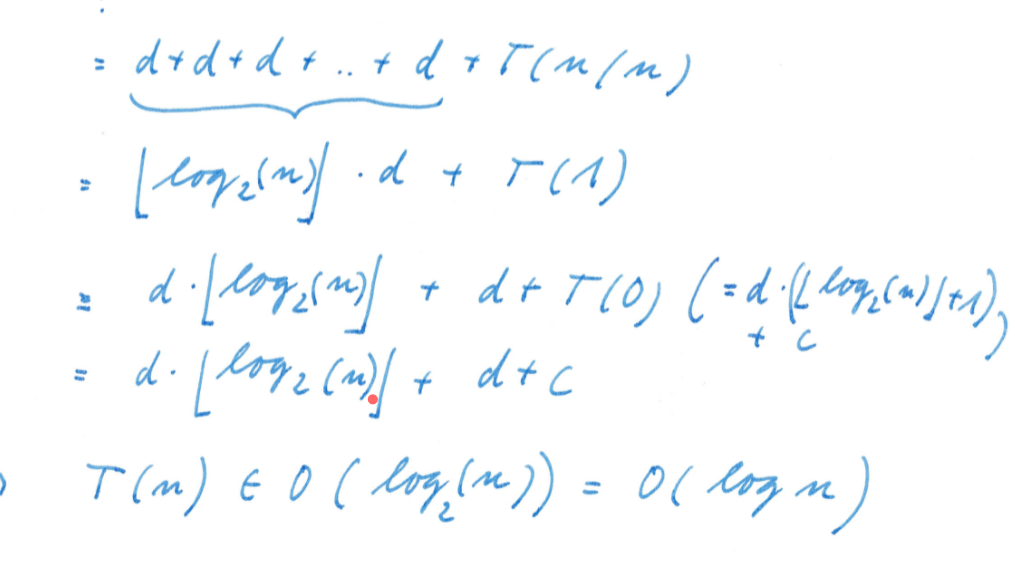 = d+d+d+..+d + T(n/n)
= ⌊log₂(n)⌋ · d + T(1)
= d·⌊log₂(n)⌋ + d + T(0) (= d·(⌊log₂(n)⌋+1) + c)
= d·⌊log₂(n)⌋ + d + c
T(n) ∈ O(log₂(n)) = O(log n)